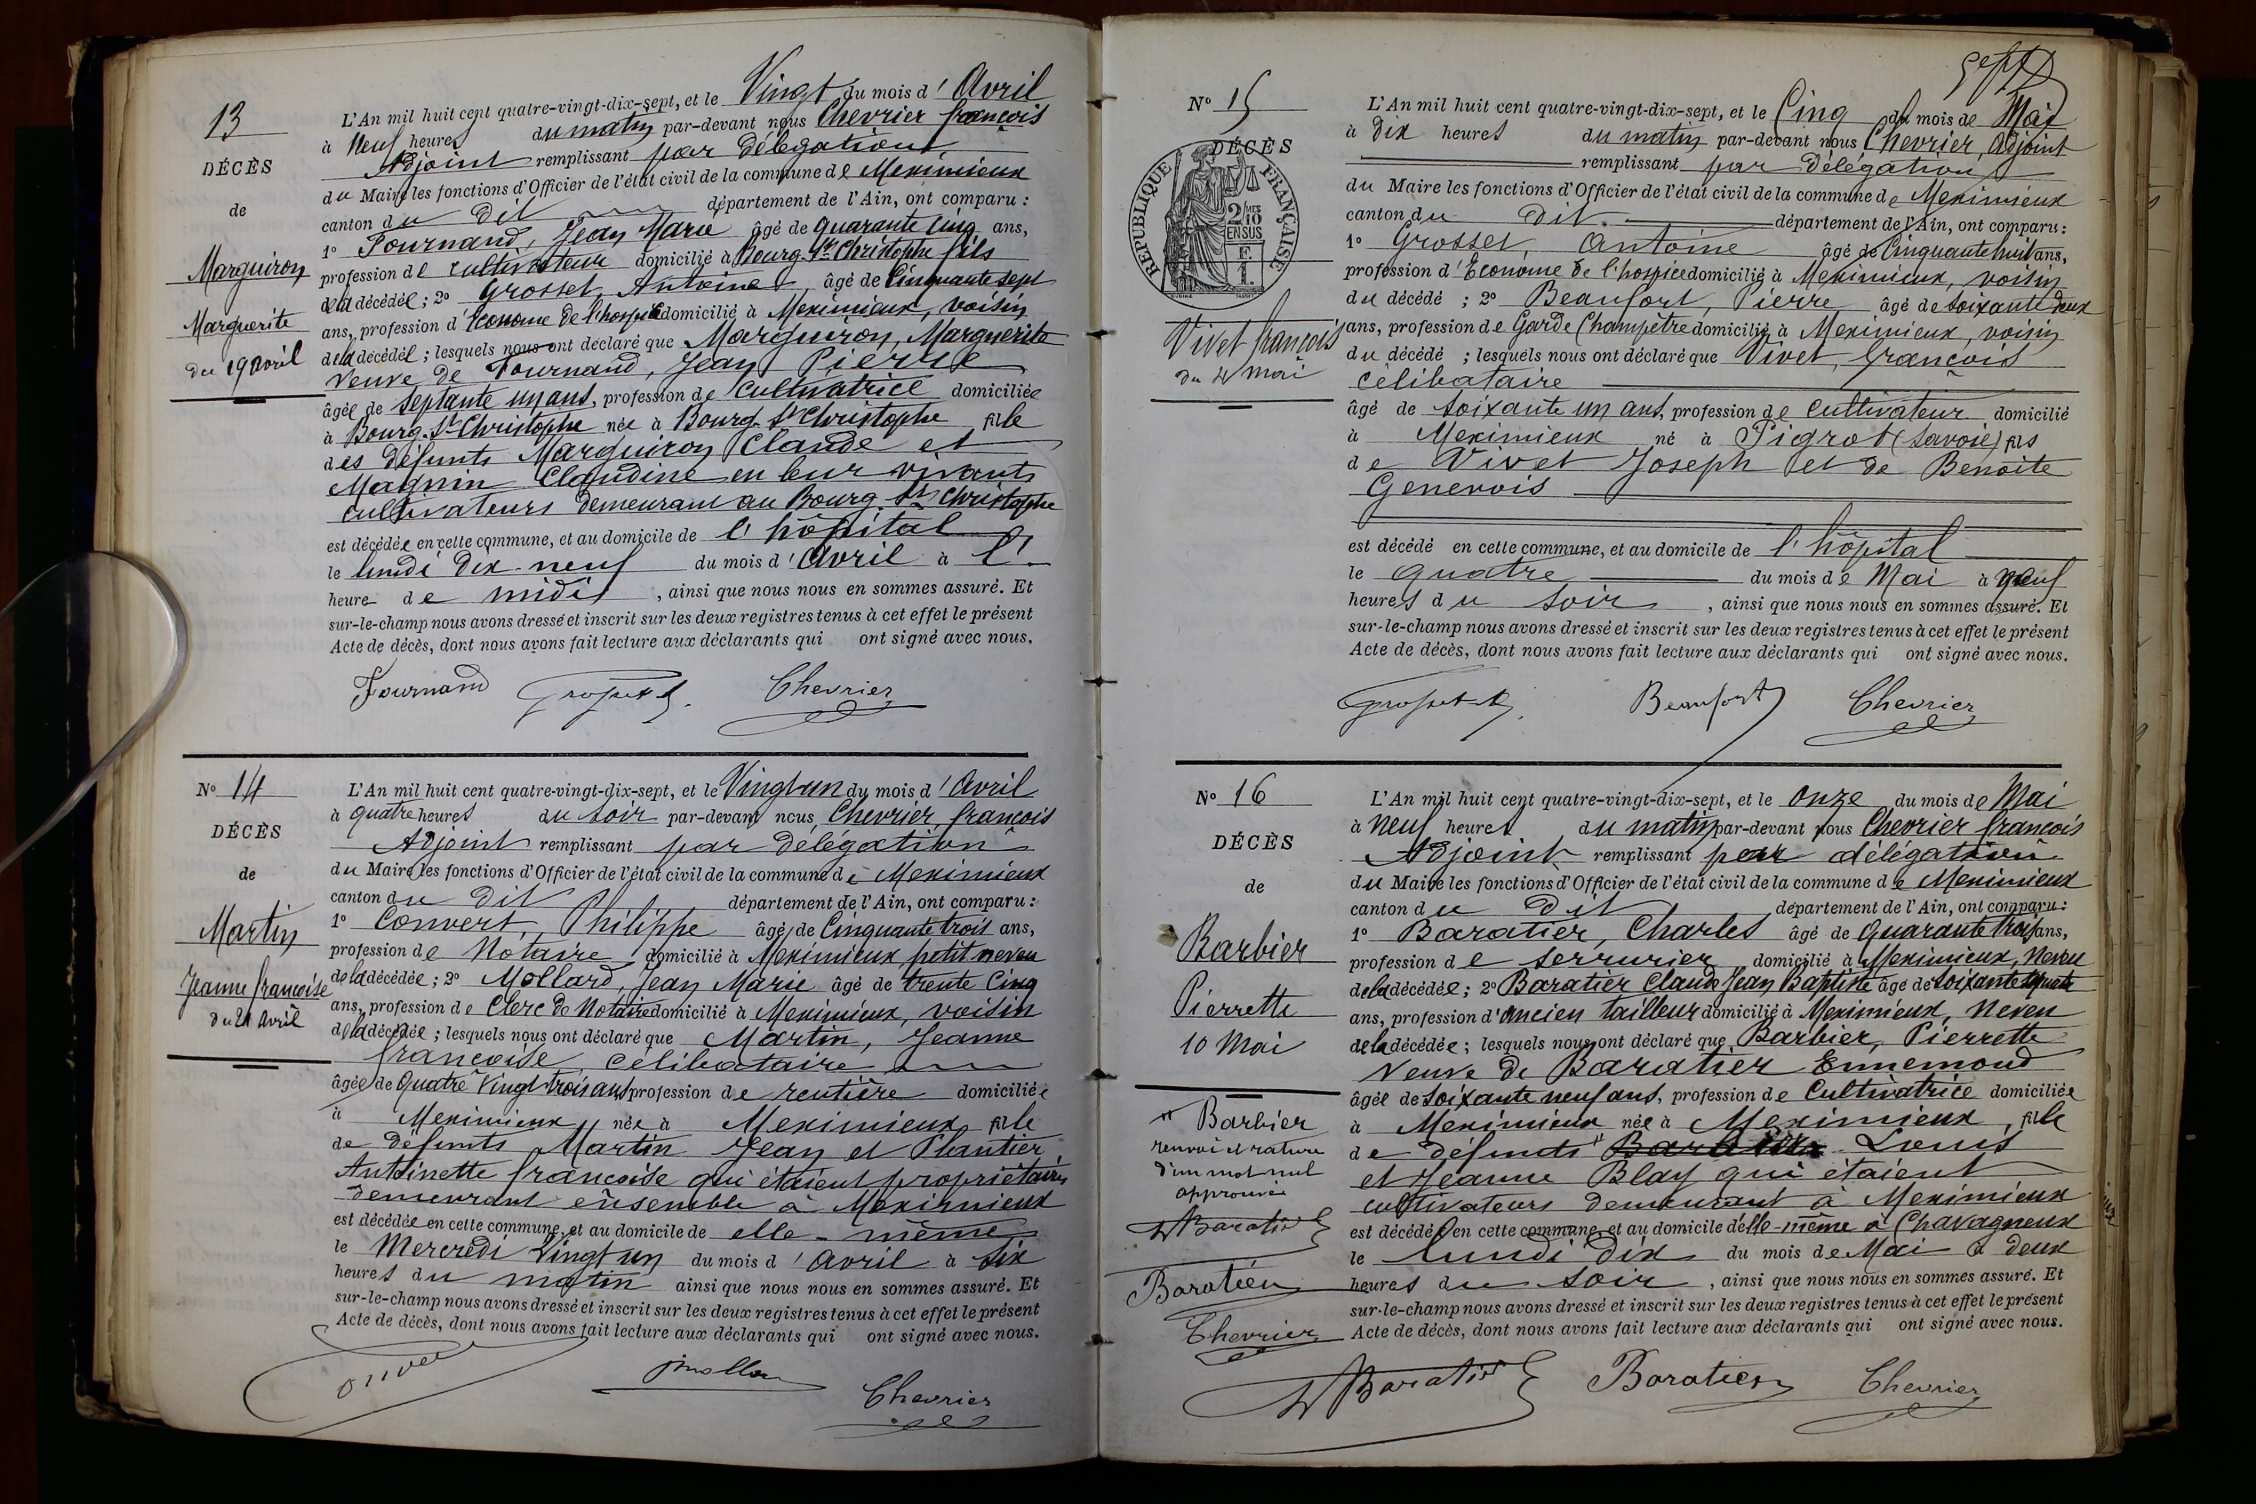 13
DÉCÈS
de
Marguiron
Marguerite
du 19 avril
L'An mil huit cent quatre-vingt-dix-sept, et le Vingt du mois d'Avril
à Neuf heures du matin par-devant nous Chevrier françois
Adjoint remplissant par délégation
du Maire les fonctions d'Officier de l'état civil de la commune de Meximieux
canton du dit département de l'Ain, ont comparu :
1° Fournand, Jean Marie âgé de quarante cinq ans,
profession de cultivateur domicilié à Bourg-St-Christophe fils
de la décédée ; 2° Grosset, Antoine, âgé de Cinquante sept
ans, profession d'Econome de l'hospice domicilié à Meximieux, voisin
de la décédée ; lesquels nous ont déclaré que Marguiron, Marguerite
Veuve de Fournand, Jean Pierre
âgée de septante un ans, profession de cultivatrice domiciliée
à Bourg-St-Christophe née à Bourg-St-Christophe fille
des défunts Marguiron Claude et
Magnin Claudine en leur vivants
cultivateurs demeurant au Bourg-St-Christophe
est décédée en cette commune, et au domicile de l'hôpital
le lundi dix-neuf du mois d'Avril à l'
heure de midi, ainsi que nous nous en sommes assuré. Et
sur-le-champ nous avons dressé et inscrit sur les deux registres tenus à cet effet le présent
Acte de décès, dont nous avons fait lecture aux déclarants qui ont signé avec nous.
Fournand Grosset Chevrier
N° 14
DÉCÈS
de
Martin
Jeanne françoise
du 21 avril
L'An mil huit cent quatre-vingt-dix-sept, et le Vingt-un du mois d'Avril
à quatre heures du soir par-devant nous, Chevrier françois
Adjoint remplissant par délégation
du Maire les fonctions d'Officier de l'état civil de la commune de Meximieux
canton du dit département de l'Ain, ont comparu :
1° Convert, Philippe âgé de Cinquante trois ans,
profession de Notaire domicilié à Meximieux petit neveu
de la décédée ; 2° Mollard, Jean Marie âgé de trente Cinq
ans, profession de Clerc de Notaire domicilié à Meximieux, voisin
de la décédée ; lesquels nous ont déclaré que Martin, Jeanne
françoise célibataire
âgée de Quatre Vingt trois ans profession de rentière domiciliée
à Meximieux née à Meximieux fille
de défunts Martin Jean et Plantier
Antoinette françoise qui étaient propriétaires
demeurant ensemble à Meximieux
est décédée en cette commune, et au domicile de elle-même
le Mercredi Vingt un du mois d'Avril à six
heures du matin ainsi que nous nous en sommes assuré. Et
sur-le-champ nous avons dressé et inscrit sur les deux registres tenus à cet effet le présent
Acte de décès, dont nous avons fait lecture aux déclarants qui ont signé avec nous.
Chevrier
sept
N° 15
DÉCÈS
RÉPUBLIQUE FRANÇAISE
2/10 MES
EN SUS
F.
1.
Vivet françois
du 4 mai
L'An mil huit cent quatre-vingt-dix-sept, et le Cinq du mois de Mai
à Dix heures du matin par-devant nous Chevrier, Adjoint
remplissant par délégation
du Maire les fonctions d'Officier de l'état civil de la commune de Meximieux
canton du dit département de l'Ain, ont comparu :
1° Grosset, Antoine âgé de Cinquante huit ans,
profession d'Econome de l'hospice domicilié à Meximieux, voisin
du décédé ; 2° Beaufort, Pierre âgé de soixante deux
ans, profession de Garde Champêtre domicilié à Meximieux, voisin
du décédé ; lesquels nous ont déclaré que Vivet, françois
célibataire
âgé de soixante un ans, profession de cultivateur domicilié
à Meximieux né à Pigrot (Savoie) fils
de Vivet Joseph et de Benoite
Genevois
est décédé en cette commune, et au domicile de l'hôpital
le quatre du mois de Mai à neuf
heures du soir, ainsi que nous nous en sommes assuré. Et
sur-le-champ nous avons dressé et inscrit sur les deux registres tenus à cet effet le présent
Acte de décès, dont nous avons fait lecture aux déclarants qui ont signé avec nous.
Grosset Beaufort Chevrier
N° 16
DÉCÈS
de
Barbier
Pierrette
10 Mai
Barbier
renvoi et rature
d'un mot nul
approuvée
Baratier
Baratier
Chevrier
L'An mil huit cent quatre-vingt-dix-sept, et le onze du mois de Mai
à Neuf heures du matin par-devant nous Chevrier françois
Adjoint remplissant par délégation
du Maire les fonctions d'Officier de l'état civil de la commune de Meximieux
canton du dit département de l'Ain, ont comparu :
1° Baratier, Charles âgé de Quarante trois ans,
profession de serrurier domicilié à Meximieux, Neveu
de la décédée ; 2° Baratier Claude Jean Baptiste âgé de soixante quatre
ans, profession d'ancien tailleur domicilié à Meximieux, Neveu
de la décédée ; lesquels nous ont déclaré que Barbier, Pierrette
Veuve de Baratier Ennemond
âgée de soixante neuf ans, profession de Cultivatrice domiciliée
à Meximieux née à Meximieux, fille
de défunts Louis
et Jeanne Blay qui étaient
cultivateurs demeurant à Meximieux
est décédée en cette commune, et au domicile d'elle-même à Chavagneux
le lundi dix du mois de Mai à deux
heures du soir, ainsi que nous nous en sommes assuré. Et
sur-le-champ nous avons dressé et inscrit sur les deux registres tenus à cet effet le présent
Acte de décès, dont nous avons fait lecture aux déclarants qui ont signé avec nous.
Baratier Baratier Chevrier